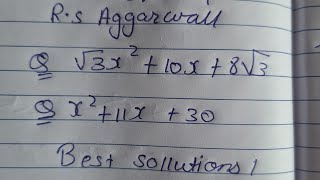 R.s Aggarwall
Q √3x² + 10x + 8√3
Q x² + 11x + 30
Best sollutions!